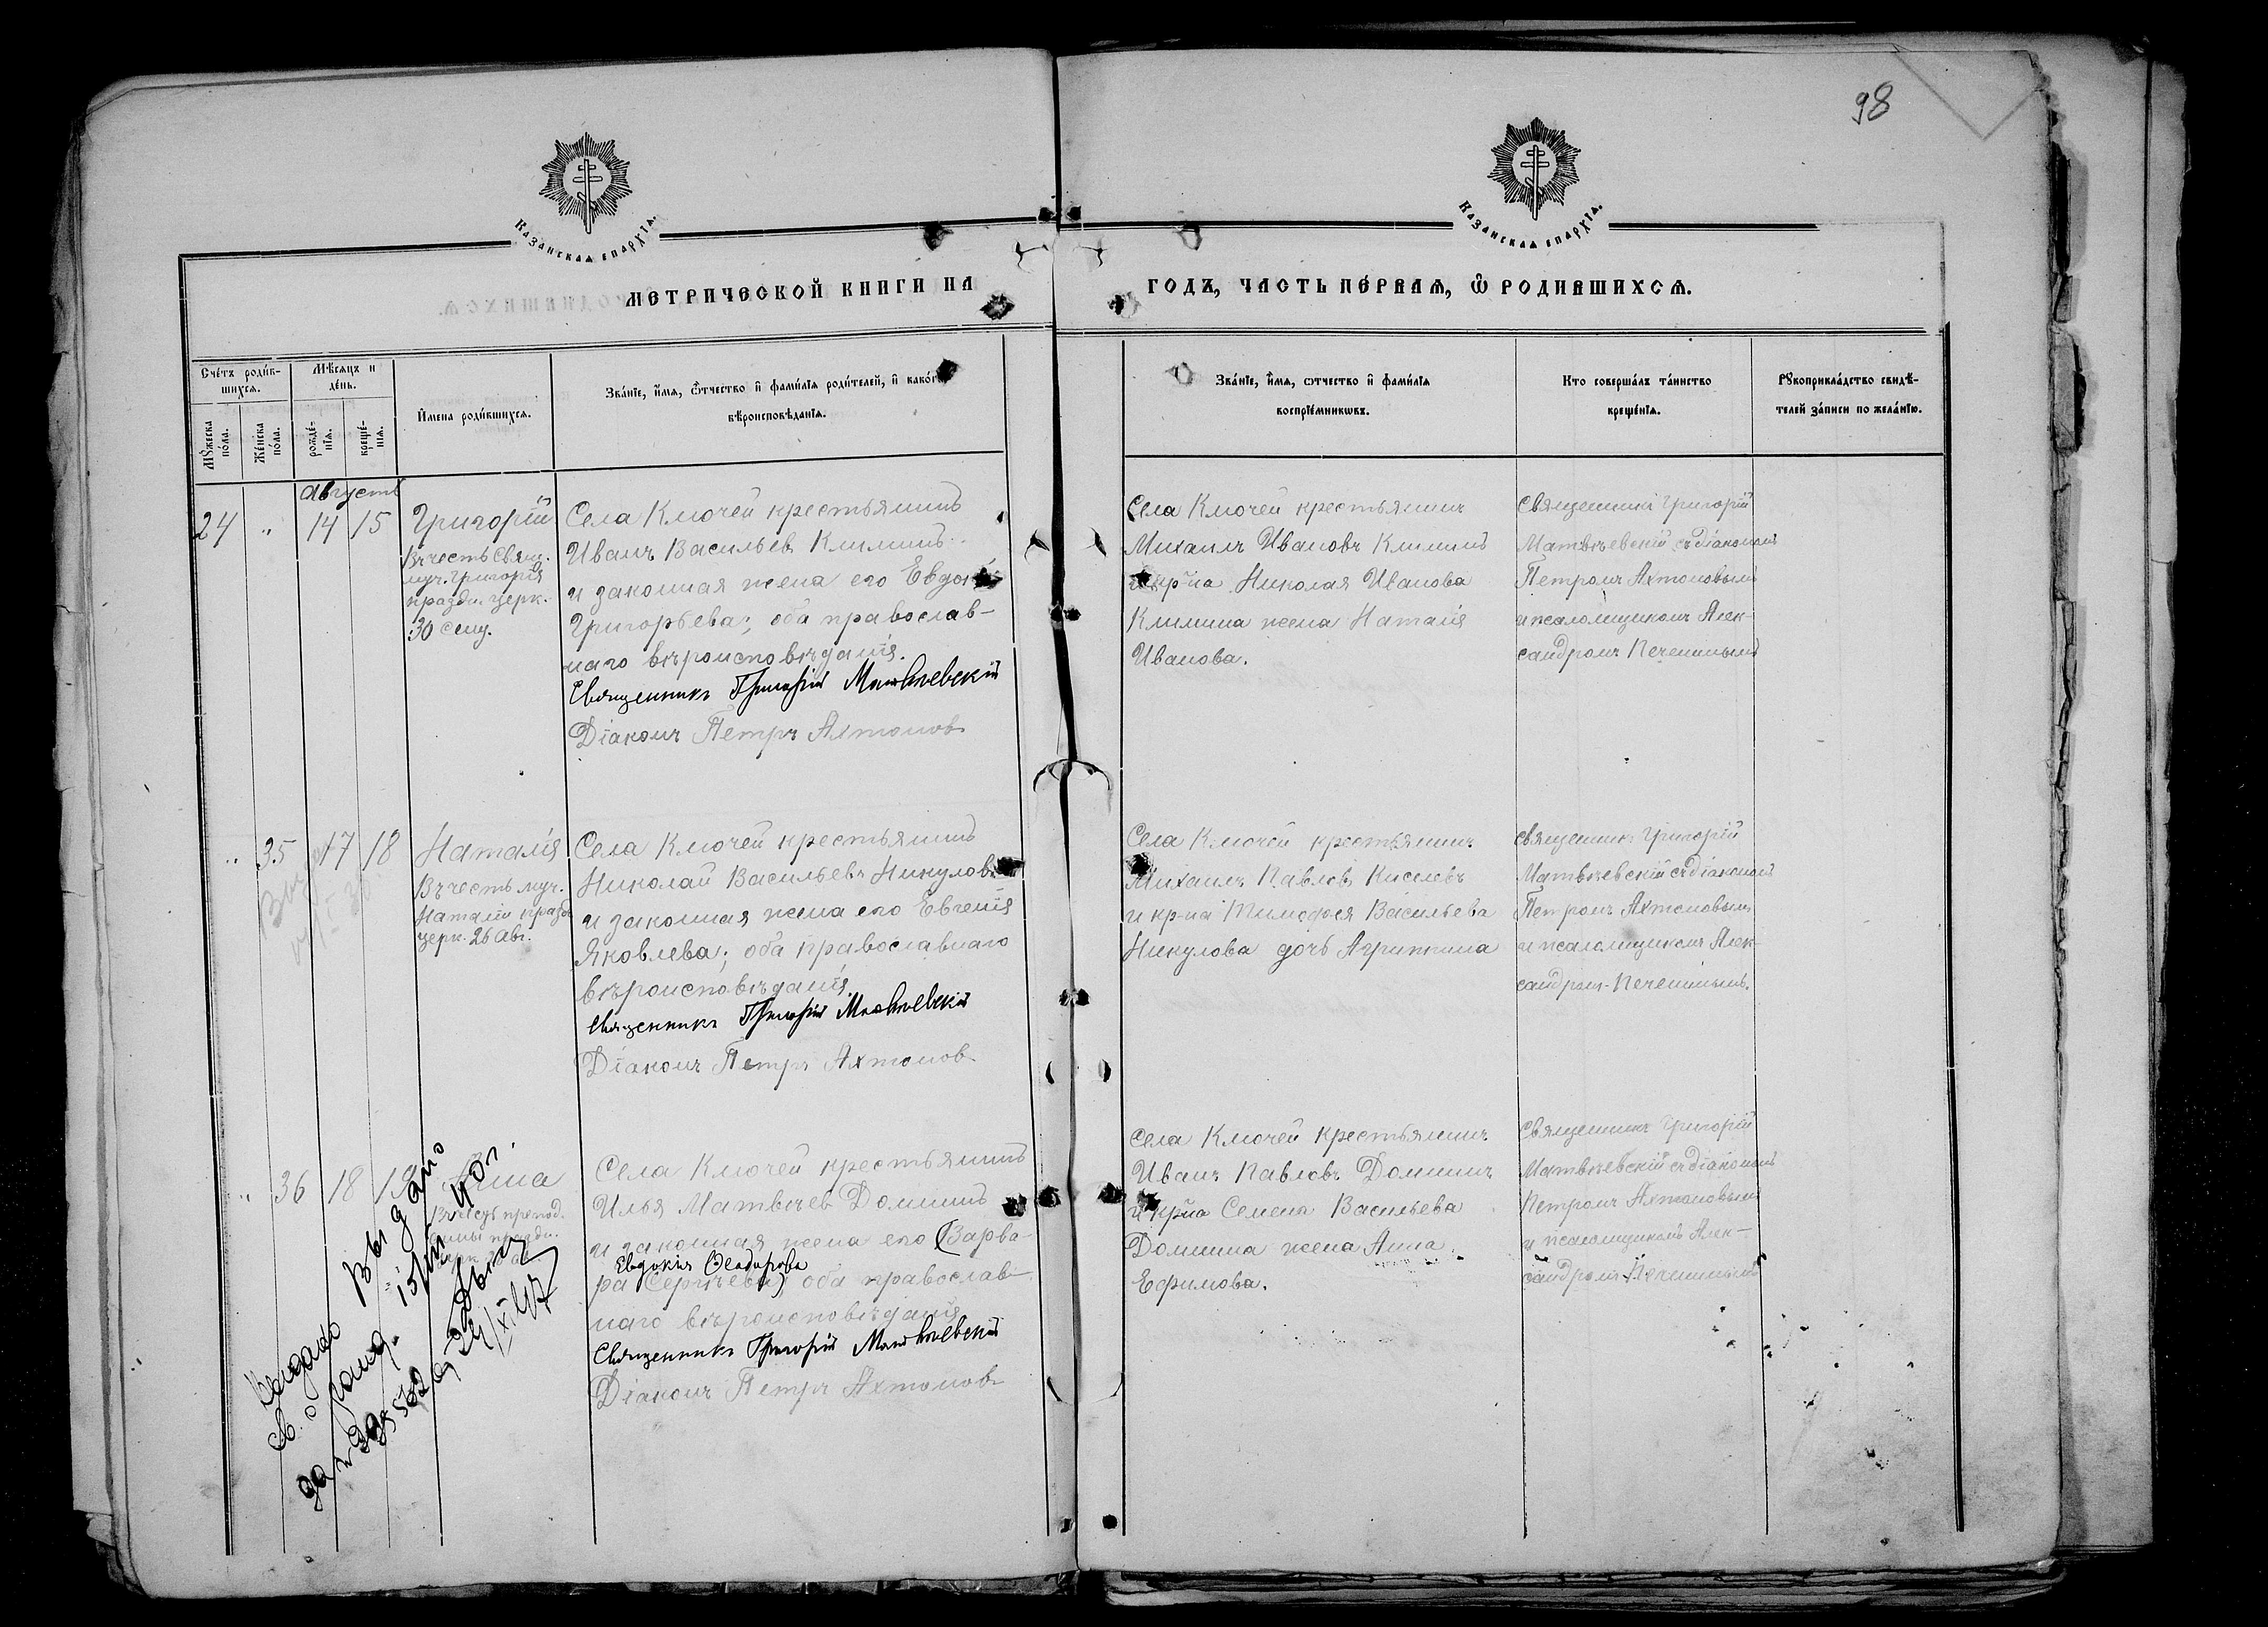 98
Казанская епархїа.
Казанская епархїа.
МЕТРИЧЕСКОЙ КНИГИ НА
ГОДЪ, ЧАСТЬ ПЕРВАЯ, Ѡ РОДИВШИХСЯ.
Сче́тъ роди́в-
шихся.
Мѣ́сяцъ и
де́нь.
Му́жеска
по́ла.
Же́нска
по́ла.
рожде́-
нїя.
креще́-
нїя.
И҆мена роди́вшихся.
Зва́нїе, и҆́мя, ѻ҆́тчество и҆ фами́лїя роди́телей, и҆ како́гѡ
вѣроисповѣ́данїя.
Зва́нїе, и҆́мя, ѻ҆́тчество и҆ фами́лїя
воспрїе́мникѡвъ.
Кто соверша́лъ та́инство
креще́нїя.
Рꙋкоприкла́дство свидѣ́-
телей за́писи по жела́нїю.
Августъ
24 " 14 15 Григорій
Въ честь Свящ.
муч. Григорія
праздн. церк.
30 Сент.
Села Ключей крестьянинъ
Иванъ Васильев Климинъ
и законная жена его
Григорьева; оба православ-
наго вѣроисповѣданія.
Священникъ Григорій Матвѣевскій
Діаконъ Петръ Ахтонов
Села Ключей крестьянинъ
Михаилъ Ивановъ Климинъ
и кр-на Николая Иванова
Климина жена Наталія
Иванова.
Священникъ Григорій
Матвѣевскій съ діакономъ
Петромъ Ахтоновымъ
и псаломщикомъ Алек-
сандромъ Печенинымъ
" 35 17 18 Наталія
Въ честь муч.
Наталіи празд.
церк. 26 Авг.
Села Ключей крестьянинъ
Николай Васильевъ Никулов
и законная жена его Евгенія
Яковлева; оба православнаго
вѣроисповѣданія
Священникъ Григорій Матвѣевскій
Діаконъ Петръ Ахтонов
Села Ключей крестьянинъ
Михаилъ Павловъ Киселевъ
и кр-на Тимофея Васильева
Никулова дочь Агрипина
Священникъ Григорій
Матвѣевскій съ діакономъ
Петромъ Ахтоновымъ
и псаломщикомъ Алек-
сандромъ Печенинымъ.
" 36 18 19
Въ честь препод.
Села Ключей крестьянинъ
Илья Матвѣев Доминъ
и законная жена его (Варва-
Евдокия Феодорова
ра Сергѣева) оба православ-
наго вѣроисповѣданія
Священникъ Григорій Матвѣевскій
Діаконъ Петръ Ахтонов
Села Ключей крестьянинъ
Иванъ Павловъ Доминъ
и кр-на Семена Васильева
Домина жена Анна
Ефимова.
Священникъ Григорій
Матвѣевскій съ діакономъ
Петромъ Ахтоновымъ
и псаломщикомъ Алек-
сандромъ Печенинымъ
Выдано